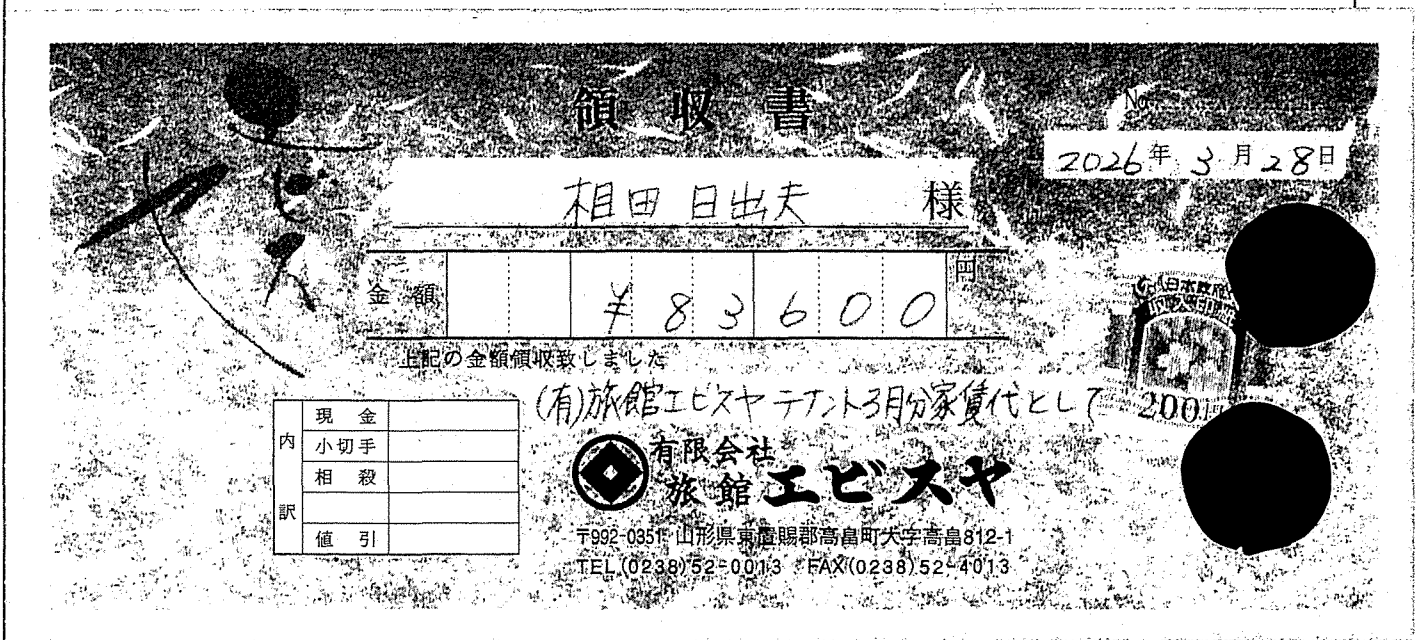 領収書
No.
2026年3月28日
相田 日出夫 様
金額 ¥83600 円
上記の金額領収致しました
(有)旅館エビスヤ テナント3月分家賃代として
200
内訳
現金
小切手
相殺
値引
有限会社
旅館エビスヤ
〒992-0351 山形県東置賜郡高畠町大字高畠812-1
TEL(0238)52-0013 FAX(0238)52-4013